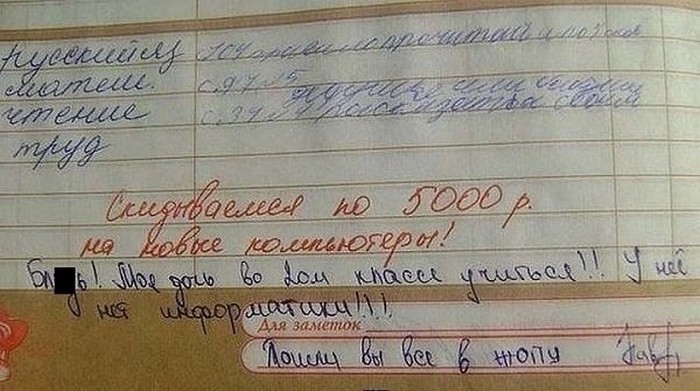 русский яз
матем. с.97 №5
чтение с.34
труд
Скидываемся по 5000 р.
на новые компьютеры!
Бл дь! Моя дочь во 2ом классе учиться!!! У неё
нет информатики!!!!
Для заметок
Пошли вы все в жопу